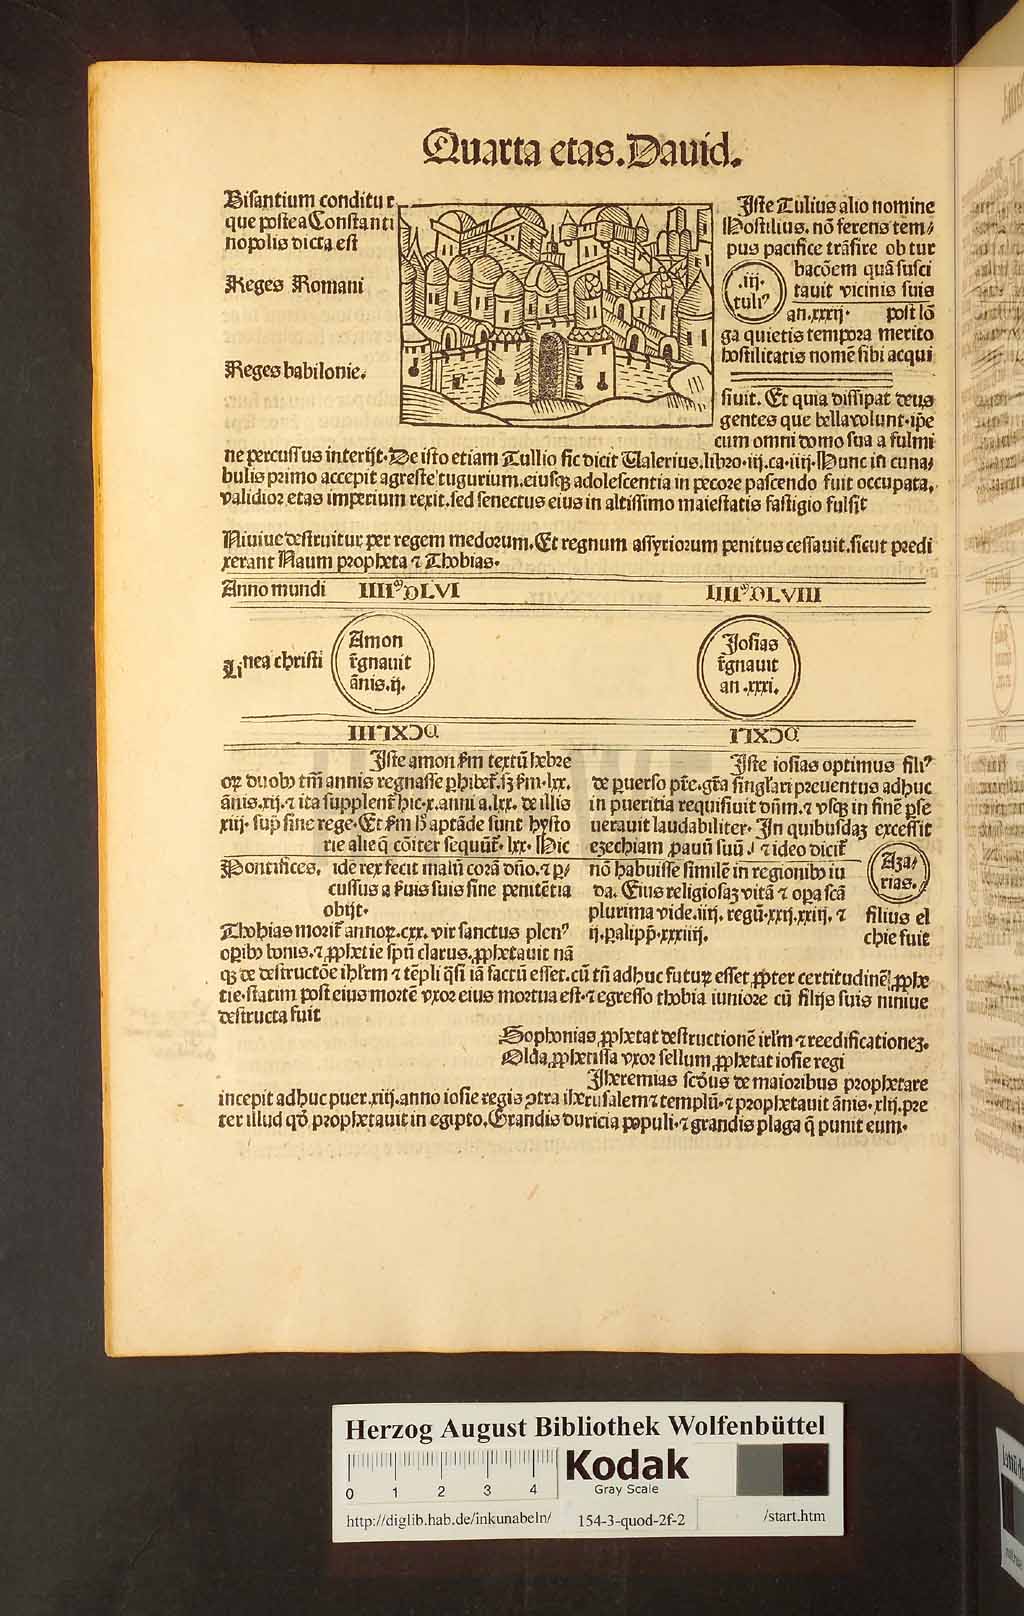 Quarta etas. Dauid.
Bisantium conditur
que postea Constanti
nopolis dicta est
Reges Romani
Reges babilonie.
Iste Tulius alio nomine
Hostilius. nō ferens tem/
pus pacifice trāsire ob tur
bacōem quā susci
tauit vicinis suis
an. xxxij. post lō
.iij.
tuliꝰ
ga quietis tempora merito
hostilitatis nomē sibi acqui
siuit. Et quia dissipat deus
gentes que bella volunt. ip̄e
cum omni domo sua a fulmi
ne percussus interijt. De isto etiam Tullio sic dicit Ualerius. libro. iij. ca. iiij. Hunc in cuna/
bulis primo accepit agreste tugurium. eiusqꝫ adolescentia in pecore pascendo fuit occupata,
validior etas imperium rexit. sed senectus eius in altissimo maiestatis fastigio fulsit
Niniue destruitur per regem medorum. Et regnum assyriorum penitus cessauit. sicut predi
xerant Naum propheta ⁊ Thobias.
Anno mundi IIIIᵐDLVI IIIIᵐDLVIII
Linea christi
Amon
r̄gnauit
ānis. ij.
Josias
r̄gnauit
an. xxxi.
DCXLIII DCXLI
Iste amon s̄m textū hebre
oꝝ duobꝫ tm̄ annis regnasse
ānis. xij. ⁊ ita
xiij. sine rege. Et s̄m aptāde sunt hysto
rie alie q̄ cōiter sequūt̄. lxx. Hic
Pontifices. idē rex fecit malū corā dn̄o. ⁊
cussus a suis sine penitētia
obijt.
Thobias morit̄ annoꝝ. cxx. vir sanctus plenꝰ
opibꝫ bonis. ⁊ ꝓphetie spū clarus. ꝓphetauit nā
Iste iosias optimus filiꝰ
de puerso pr̄e. gr̄a preuentus adhuc
in pueritia requisiuit dn̄m. ⁊ vsqꝫ in finē
uerauit laudabiliter. In quibusdaꝫ excessit
ezechiam suū ⁊ ideo dicit̄
nō habuisse similē in regionibꝫ iu
da. Eius religiosaꝫ vitā ⁊ oꝑa scā
plurima vide. iiij. regū. xxij. xxiij. ⁊
ij. palipp̄. xxxiiij.
Aza/
rias.
filius el
chie fuit
qꝫ de destructōe ihr̄lem ⁊ tēpli q̄si iā factū esset. cū tn̄ adhuc futuꝝ esset ꝓpter certitudinē ꝓphe
tie. statim post eius mortē vxor eius mortua est. ⁊ egresso thobia iuniore cū filijs suis niniue
destructa fuit
Sophonias ꝓphetat destructionē irl̄m ⁊ reedificationeꝫ.
Olda ꝓphetissa vxor sellum ꝓphetat iosie regi
Iheremias scd̄us de maioribus prophetare
incepit adhuc puer. xiij. anno iosie regis ꝯtra iherusalem ⁊ templū. ⁊ prophetauit ānis. xlij. pre
ter illud qd̄ prophetauit in egipto. Grandis duricia populi. ⁊ grandis plaga q̄ punit eum.
Herzog August Bibliothek Wolfenbüttel
0 1 2 3 4
Kodak
Gray Scale
http://diglib.hab.de/inkunabeln/ 154-3-quod-2f-2 /start.htm